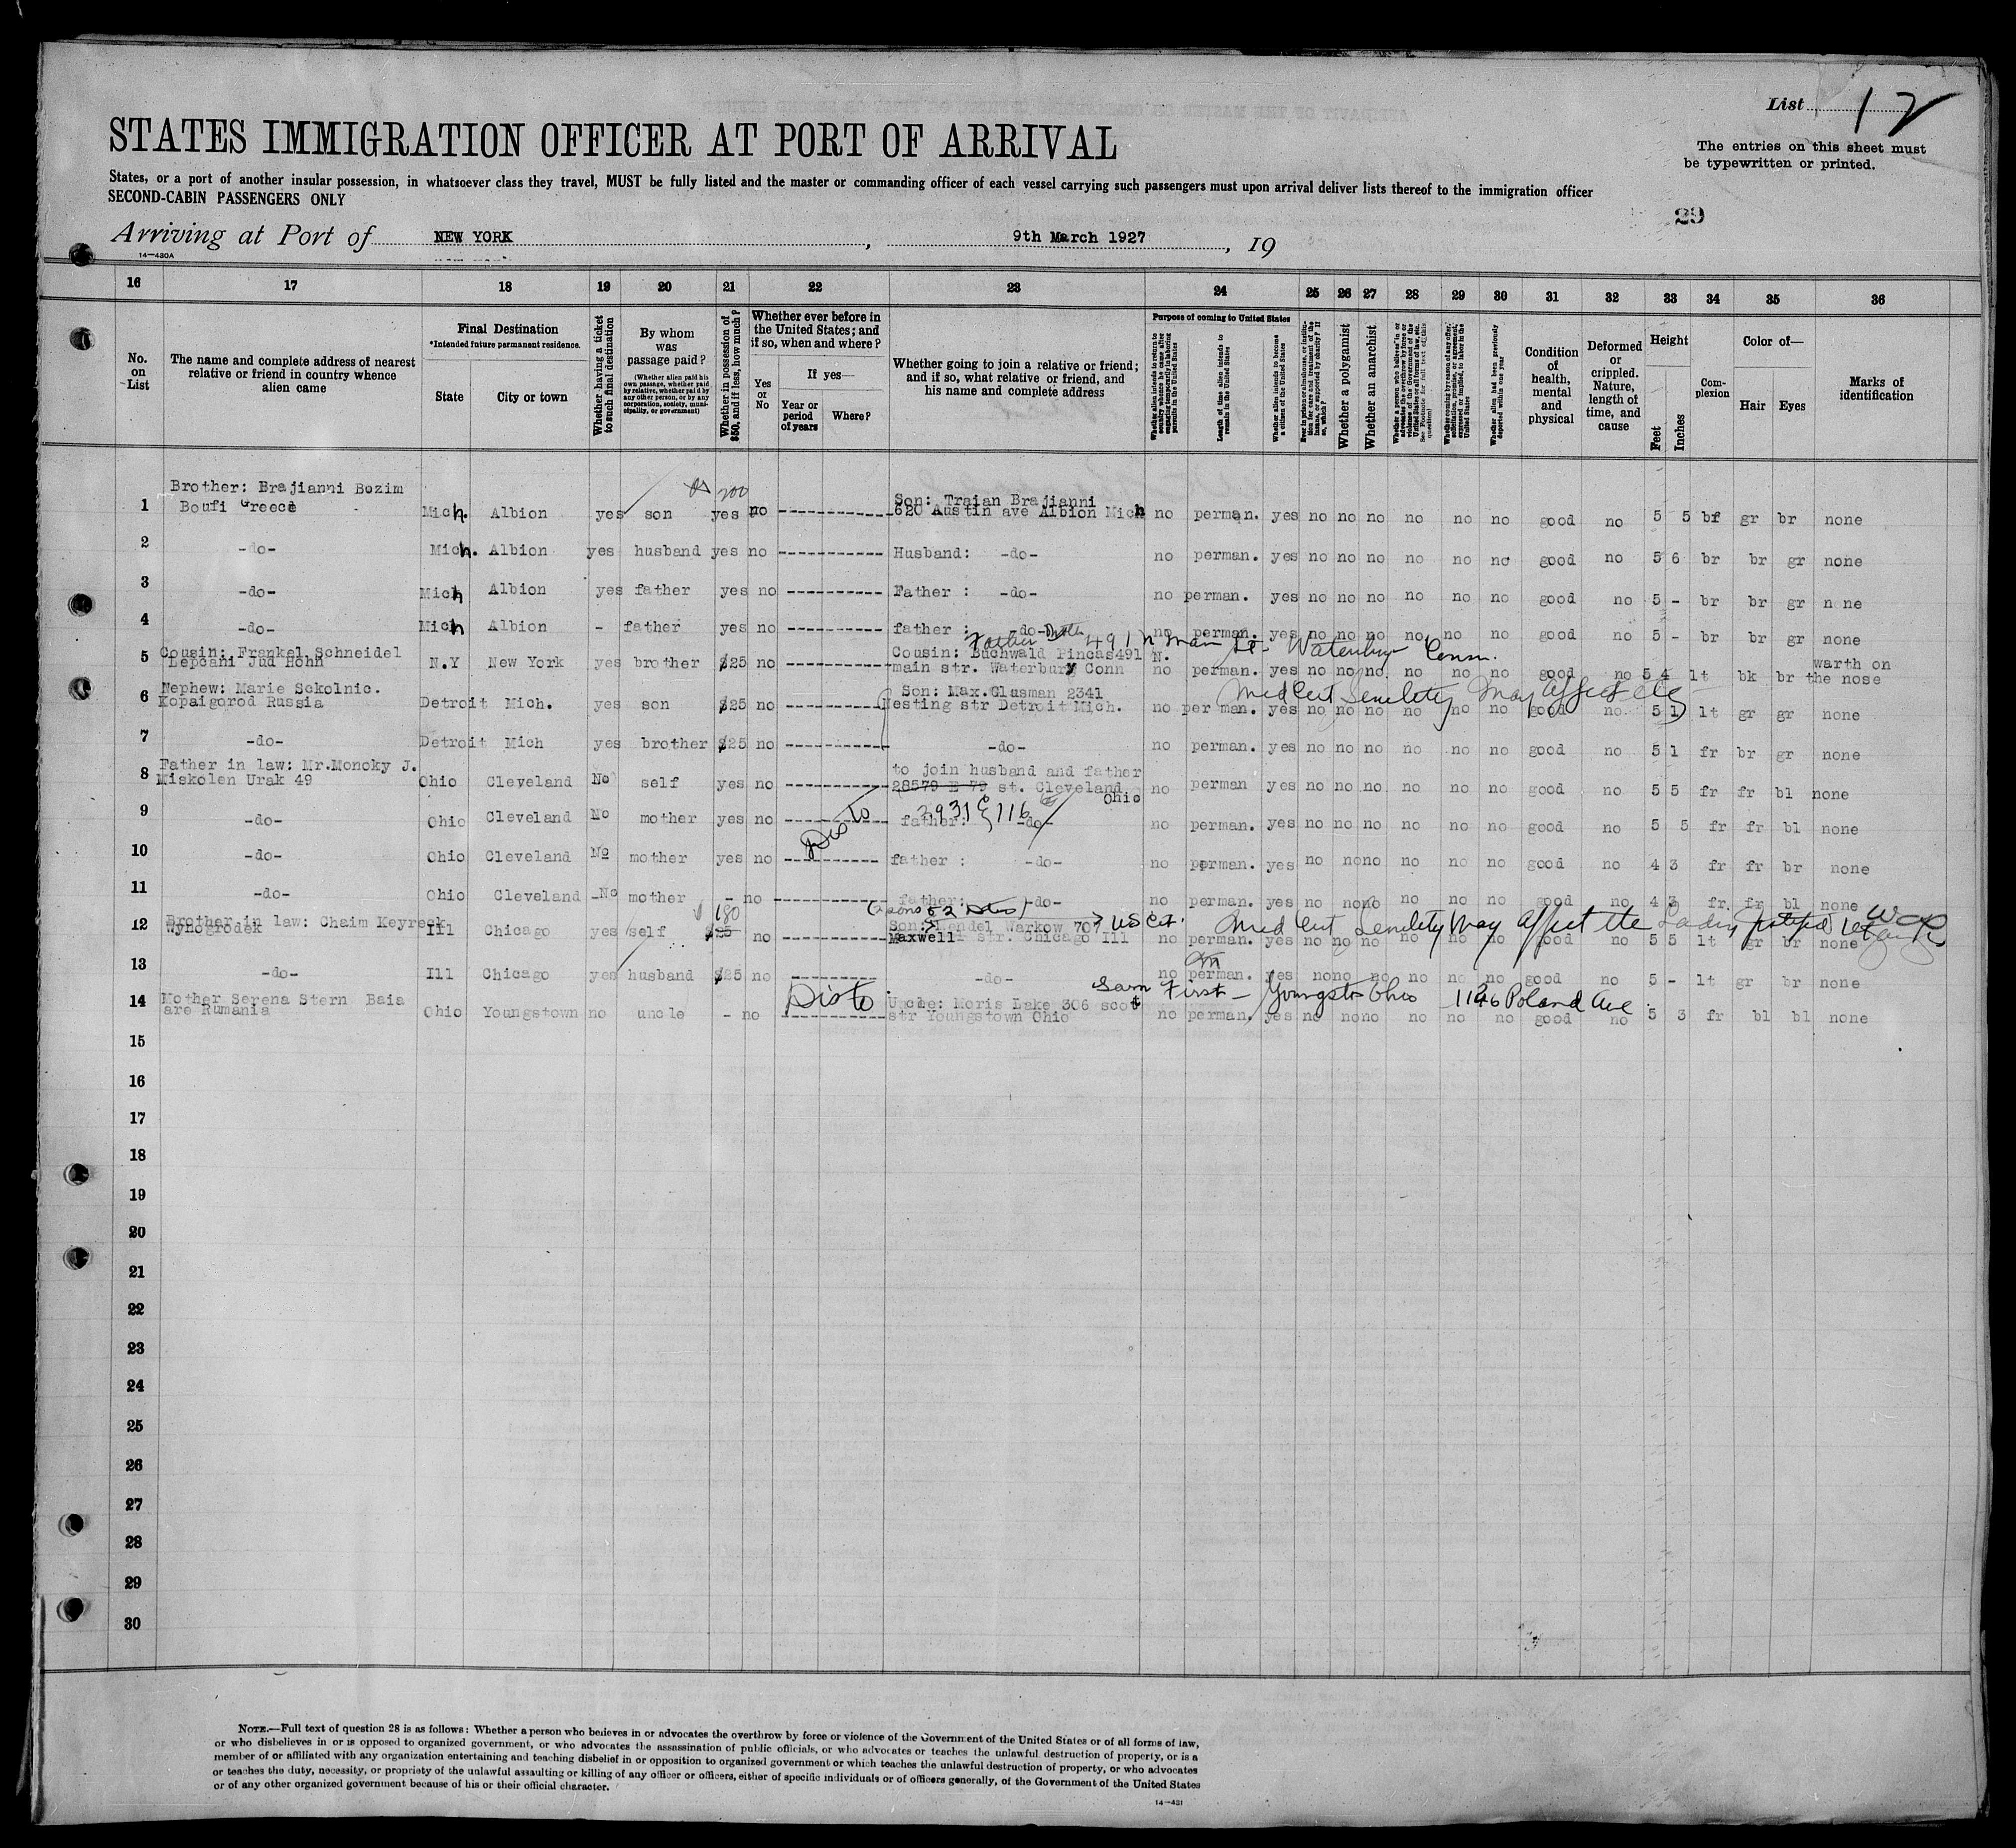 List 12
The entries on this sheet must
be typewritten or printed.
STATES IMMIGRATION OFFICER AT PORT OF ARRIVAL
States, or a port of another insular possession, in whatsoever class they travel, MUST be fully listed and the master or commanding officer of each vessel carrying such passengers must upon arrival deliver lists thereof to the immigration officer
SECOND-CABIN PASSENGERS ONLY
29
Arriving at Port of NEW YORK, 9th March 1927, 19
14-430A
16 17 18 19 20 21 22 23 24 25 26 27 28 29 30 31 32 33 34 35 36
No. on List
The name and complete address of nearest relative or friend in country whence alien came
Final Destination
*Intended future permanent residence.
State
City or town
Whether having a ticket to such final destination
By whom was passage paid?
(Whether alien paid his own passage, whether paid by relative, whether paid by any other person, or by any corporation, society, municipality, or government)
Whether in possession of $50, and if less, how much?
Whether ever before in the United States; and if so, when and where?
Yes or No
If yes—
Year or period of years
Where?
Whether going to join a relative or friend; and if so, what relative or friend, and his name and complete address
Purpose of coming to United States
Whether alien intends to return to country whence he came after engaging temporarily in laboring pursuits in the United States
Length of time alien intends to remain in the United States
Whether alien intends to become a citizen of the United States
Ever in prison or almshouse, or institution for care and treatment of the insane, or supported by charity? If so, which?
Whether a polygamist
Whether an anarchist
Whether a person who believes in or advocates the overthrow by force or violence of the Government of the United States or all forms of law, etc. See Footnote for full text of this question)
Whether coming by reason of any offer, solicitation, promise, or agreement, expressed or implied, to labor in the United States
Whether alien had been previously deported within one year
Condition of health, mental and physical
Deformed or crippled. Nature, length of time, and cause
Height
Feet
Inches
Complexion
Color of—
Hair
Eyes
Marks of identification
200
Brother: Brajianni Bozim Son: Traian Brajianni
1 Boufi Greece Mich. Albion yes son yes no 620 Austin ave Albion Mich no perman. yes no no no no no no good no 5 5 br gr br none
2 -do- Mich. Albion yes husband yes no Husband: -do- no perman. yes no no no no no no good no 5 6 br br gr none
3 -do- Mich Albion yes father yes no Father : -do- no perman. yes no no no no no no good no 5 - br br gr none
4 -do- Mich Albion - father yes no father : -do- no perman. yes no no no no no no good no 5 - br br gr none
491 N Main St. Waterbury Conn.
Cousin: Frankel Schneidel Cousin: Buchwald Pincas 491 N. warth on
5 Lepcani Jud Hohn N.Y New York yes brother $25 no main str. Waterbury Conn no perman. yes no no no no no no good no 5 4 lt bk br the nose
Nephew: Marie Sokolnic. Son: Max.Glusman 2341 Med Cert Senility May affect
6 Kopaigorod Russia Detroit Mich. yes son $25 no Hesting str Detroit Mich. no per man. yes no no no no no no good no 5 1 lt gr gr none
7 -do- Detroit Mich yes brother $25 no -do- no perman. yes no no no no no no good no 5 1 fr br gr none
Father in law: Mr.Monoky J. to join husband and father
8 Miskolen Urak 49 Ohio Cleveland No self yes no 28579 E 79 st. Cleveland Ohio no perman yes no no no no no no good no 5 5 fr fr bl none
2931 E 116
9 -do- Ohio Cleveland No mother yes no father: -do- no perman. yes no no no no no no good no 5 5 fr fr bl none
10 -do- Ohio Cleveland No mother yes no father : -do- no perman. yes no no no no no no good no 4 3 fr fr br none
11 -do- Ohio Cleveland No mother - no father: -do- no perman. yes no no no no no no good no 4 3 fr. fr bl none
180 US Cit. Med Cert Senility May affect the
Brother in law: Chaim Keyreck Son: Mendel Warkow 707
12 Wynogrodek Ill Chicago yes self $25 no Maxwell str. Chicago Ill no perman. yes no no no no no no good no 5 5 lt gr br none
13 -do- Ill Chicago yes husband $25 no -do- no perman. yes no no no no no no good no 5 - lt gr br none
Sam First - Youngsto Ohio 1146 Poland Ave
Mother Serena Stern Baia Uncle: Moris Lake 306 scot
14 are Rumania Ohio Youngstown no uncle - no str Youngstown Ohio no perman. yes no no no no no no good no 5 3 fr bl bl none
15
16
17
18
19
20
21
22
23
24
25
26
27
28
29
30
NOTE.—Full text of question 28 is as follows: Whether a person who believes in or advocates the overthrow by force or violence of the Government of the United States or of all forms of law,
or who disbelieves in or is opposed to organized government, or who advocates the assassination of public officials, or who advocates or teaches the unlawful destruction of property, or is a
member of or affiliated with any organization entertaining and teaching disbelief in or opposition to organized government or which teaches the unlawful destruction of property, or who advocates
or teaches the duty, necessity, or propriety of the unlawful assaulting or killing of any officer or officers, either of specific individuals or of officers generally, of the Government of the United States
or of any other organized government because of his or their official character.
14-431